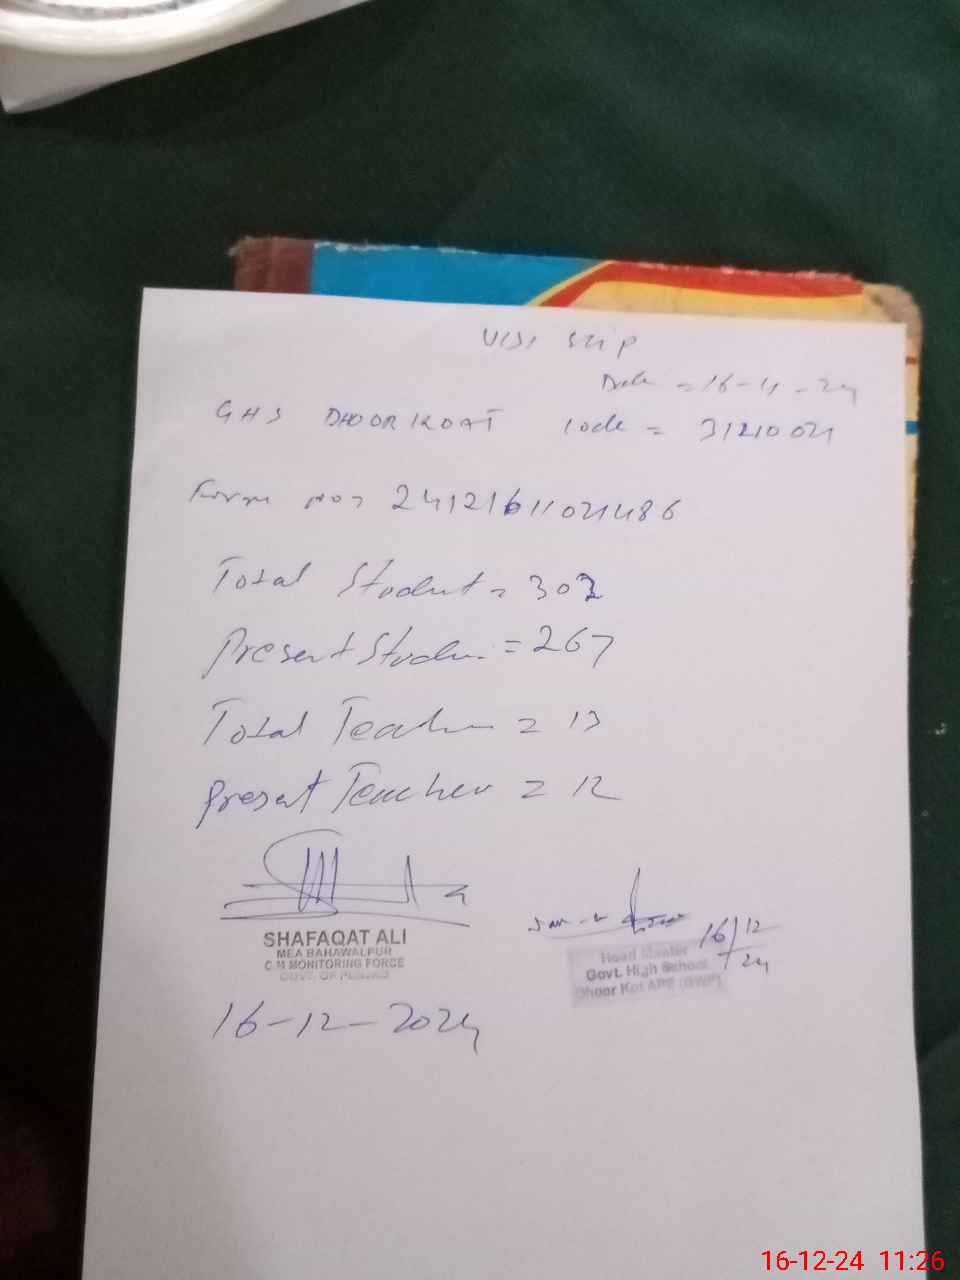 Visi Slip
Date = 16-12-24
GHS DHOOR KOAT Code = 31210021
Form no = 24121611021486
Total Student = 302
Present Studen = 267
Total Teacher = 13
Present Teacher = 12
SHAFAQAT ALI
MEA BAHAWALPUR
C.M MONITORING FORCE
GOVT. OF PUNJAB
16-12-2024
16/12
24
Head Master
Govt. High School
Dhoor Kot APE (BWP)
16-12-24 11:26